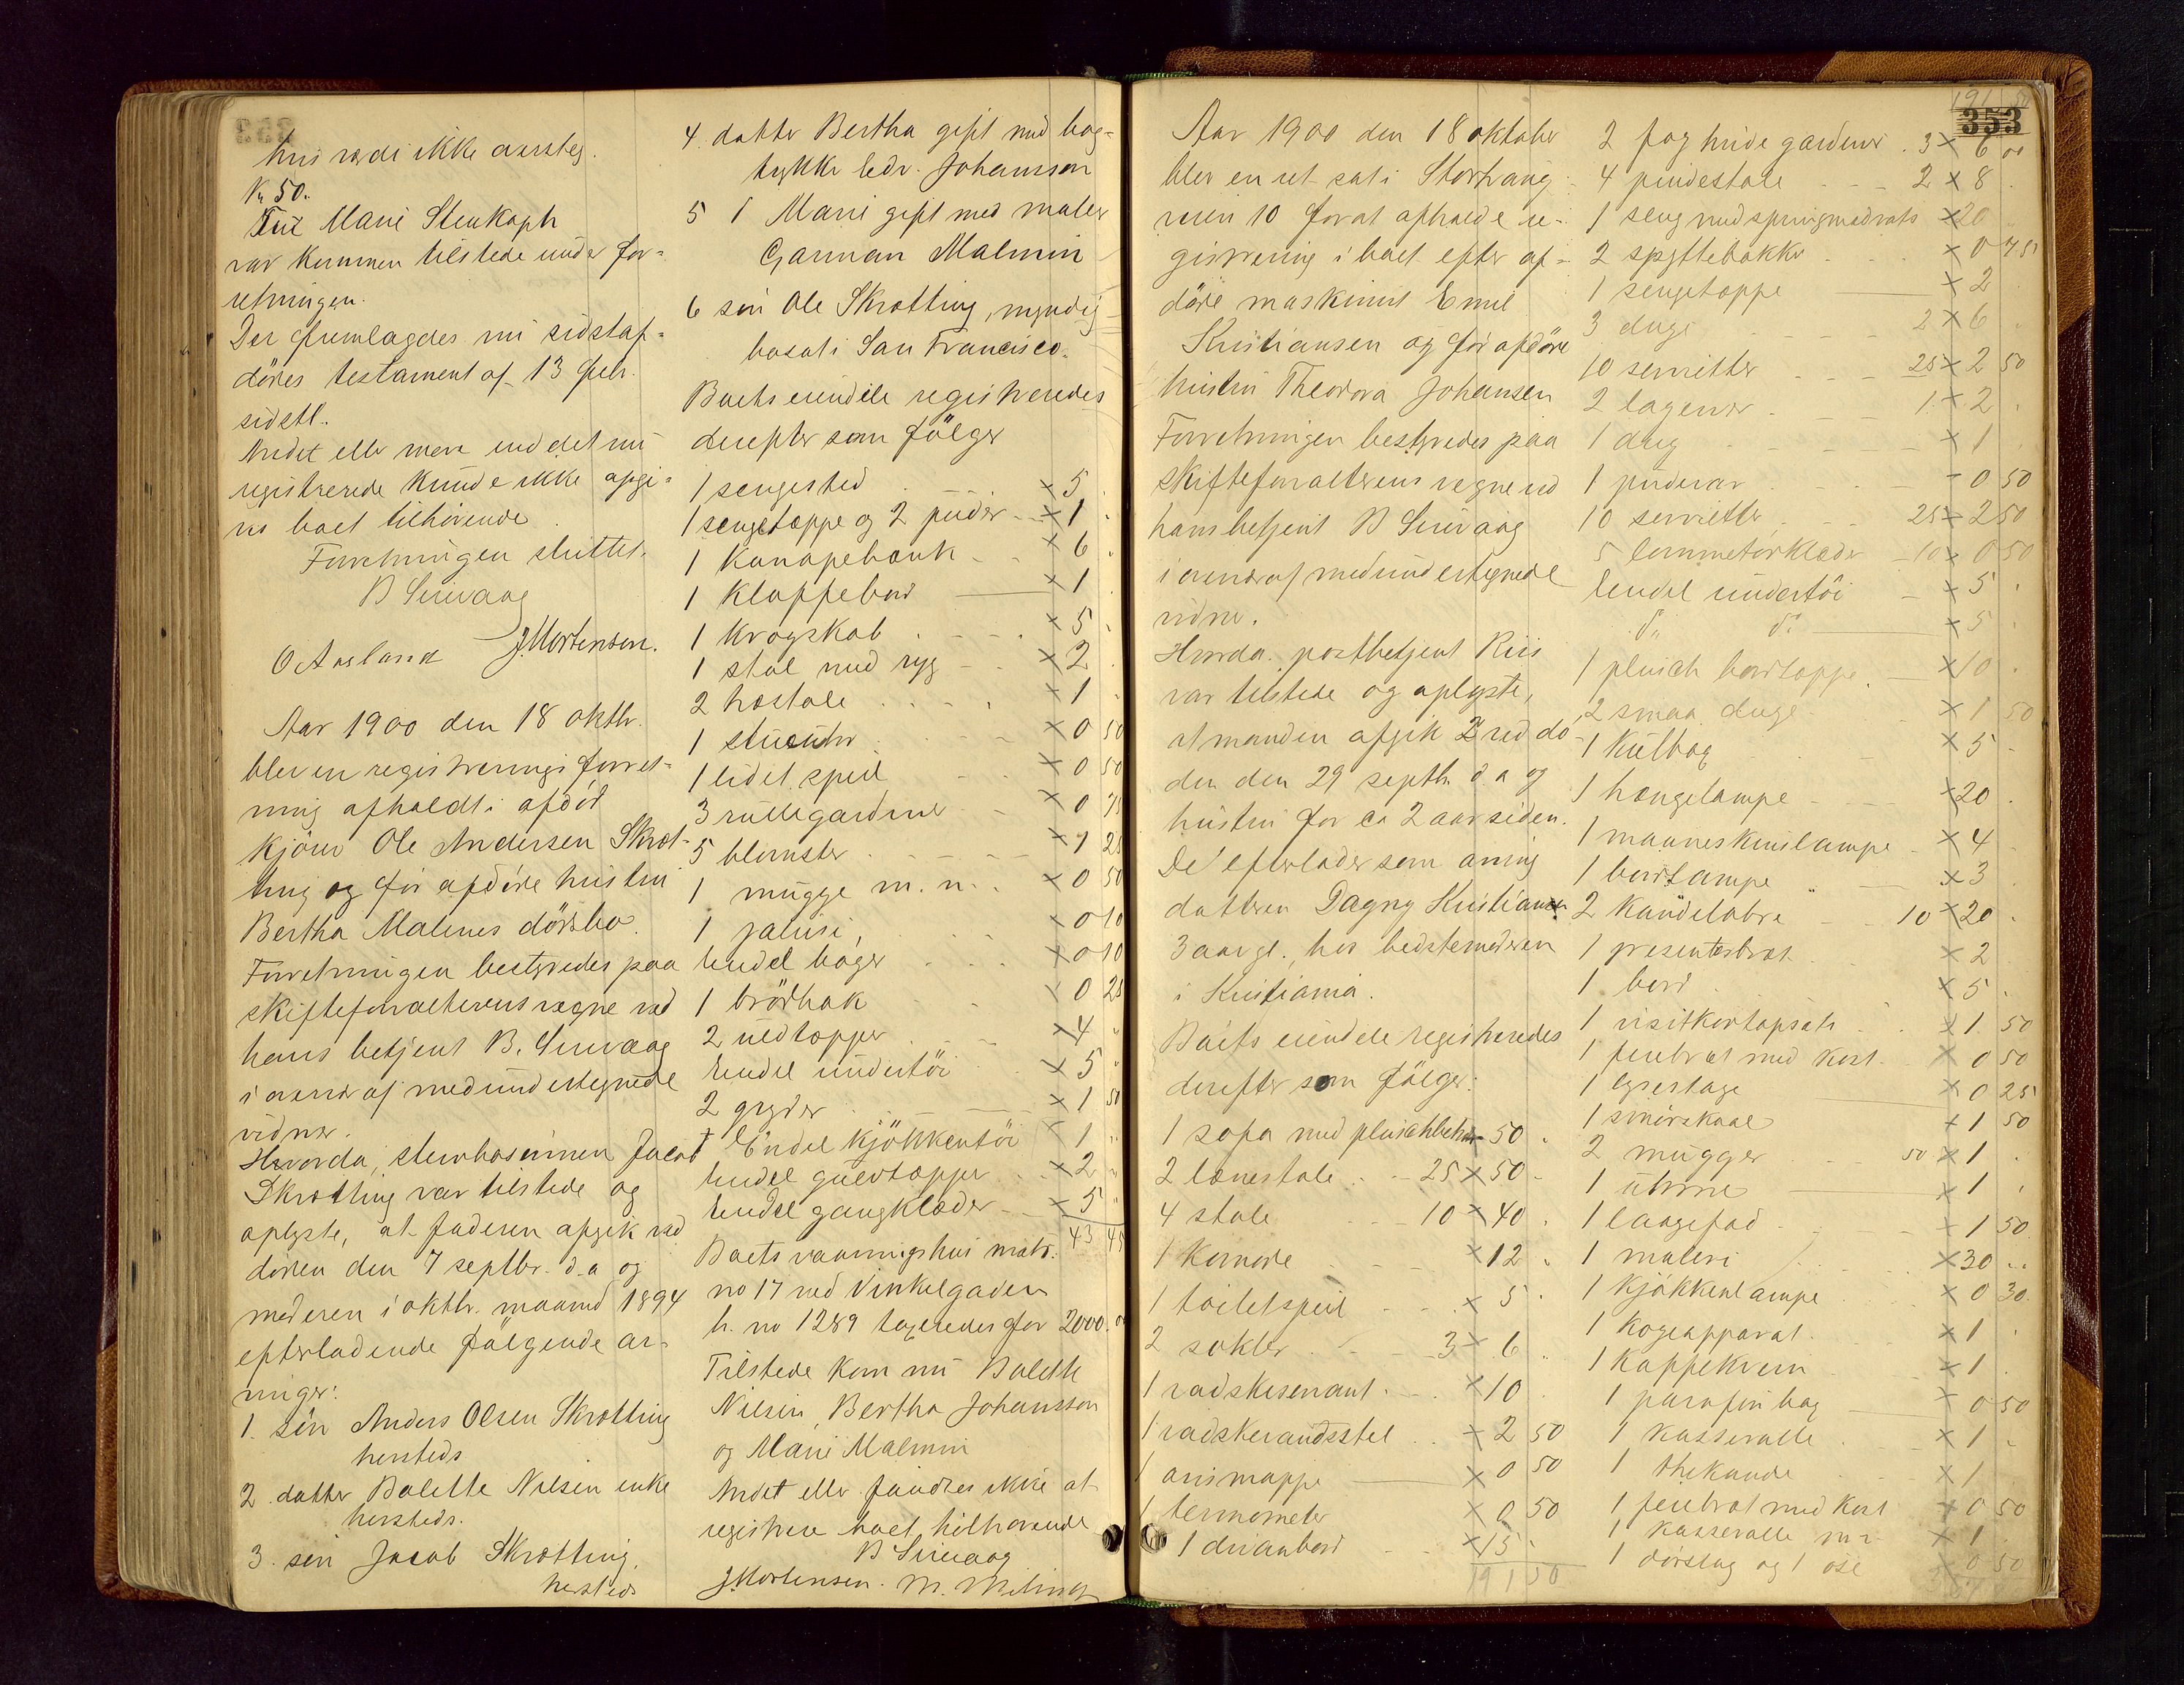 hus værdi ikke ansættes.
Kr 50.
Frk Marie Stenkoph
var kommen tilstede under for-
retningen.
Der fremlagdes nu sidstaf-
døres testament af 13 febr.
sidstl.
Andet eller mere end det nu
registrerede kunde ikke opgi-
ves boet tilhørende.
Forretningen sluttet.
B Sirevaag
O Aasland J. Mortensen.
Aar 1900 den 18 oktbr.
blev en registreringsforret-
ning afholdt i afdød
kjører Ole Andersen Skrot-
ting og før afdøde hustru
Bertha Malenes dødsbo.
Forretningen bestyredes paa
skifteforvalterens vegne ved
hans betjent B. Sirevaag
i overvær af medundertegnede
vidner.
Hvorda, stervbosønnen Jacob
Skrotting var tilstede og
oplyste, at faderen afgik ved
døden den 7 septbr. d.a og
moderen i oktbr. maaned 1894
efterladende følgende ar-
vinger:
1. søn Anders Olsen Skrotting
hersteds
2. datter Bolette Nilsen enke
hersteds.
3. søn Jacob Skrotting,
hersteds
4 datter Bertha gift med bog-
trykker Johansson
5 1 Marie gift med maler
Garman Malmin
6 søn Ole Skrotting, myndig
bosat i San Francisco.
Boets eiendele registreredes
derefter som følger
1 sengested × 5 .
1 sengetæppe og 2 puder × 1 .
1 Kanapebænk × 6 .
1 Klappebord × 1 .
1 Krogskab × 5 .
1 stol med ryg × 2 .
2 hostole × 1 .
1 stueuhr × 0 50
1 lidet speil × 0 50
3 rullegardiner × 0 75
5 blomster × 1 25
1 mugge m. m. × 0 50
1 jalusi, × 0 10
Endel bøger × 0 10
1 brødbak × 0 25
2 uldtæpper × 4 "
Endel undertøi × 5 "
2 gryder × 1 50
+ Endel kjøkkentøi 1 "
Endel gulvtæpper × 2 "
Endel gangklæder × 5 "
43 45
Boets vaaningshus matr.
no 17 ved Vinkelgaden
h. no 1289 taxeredes for 2000.00
Tilstede kom nu Bolette
Nilsen, Bertha Johansson
og Marie Malmin
Andet eller fandtes ikke at
registrere boet tilhørende
B Sirevaag
J. Mortensen.
353
Aar 1900 den 18 oktober
blev en ret sat i Storhaug-
veien 10 for at afholde re-
gistrering i boet efter af-
døde maskinist Emil
Kristiansen og før afdøde
hustru Theodora Johansen
Forretningen bestyredes paa
skifteforvalterens vegne ved
hans betjent B Sirevaag
i overvær af medundertegnede
vidner.
Hvorda postbetjent Riis
var tilstede og oplyste,
at manden afgik ved dø-
den den 29 septbr. d. a og
hustru for ca 2 aar siden.
De efterlader som arving
datteren Dagny Kristiansen
3 aar gl., hos bedstemoderen
i Kristiania.
Boets eiendele registreredes
derefter som følger:
1 sofa med pluschbetræk 50 .
2 lænestole 25 × 50 -
4 stole 10 × 40 .
1 Komode × 12 .
1 toiletspeil × 5 .
2 sokler 3 × 6 .
1 vadskeservant × 10 .
1 vadskevandsstel × 2 50
1 avismappe × 0 50
1 termometer × 0 50
1 divanbord × 15 .
191 50
191 50
2 fag hvide gardiner 3 × 6 00
4 pindestole 2 × 8 .
1 seng med springmadrats × 20 .
2 spyttebakker × 0 75
1 sengetæppe × 2 .
3 duge 2 × 6 .
10 servietter 25 × 2 50
2 lagener 1 × 2 .
1 dug × 1 .
1 pudevar - 0 50
10 servietter 25 × 2 50
5 lommetørklæder 10 × 0 50
Endel undertøi × 5 .
do do × 5 .
1 plusch bordtæppe × 10 .
2 smaa duge × 1 50
1 Kulbox × 5 .
1 hængelampe × 20 .
1 maaneskinslampe × 4 .
1 bordlampe × 3 .
2 Kandelabre 10 × 20 .
1 presenterbræt × 2
1 bord × 5 .
1 visitkortopsats × 1 50
1 feiebræt med Kost × 0 50
1 lysestage × 0 25
1 smørskaal × 1 50
2 mugger 50 × 1 .
1 × 1 .
1 laagefad × 1 50
1 maleri × 30 ..
1 Kjøkkenlampe × 0 30
1 Kogeapparat × 1 .
1 Kaffekvern × 1 .
1 parafin × 0 50
1 Kasserolle × 1 .
1 thekande × 1
1 feiebræt med Kost × 0 50
1 Kasserolle × 1
1 dørslag og 1 øse × 0 50